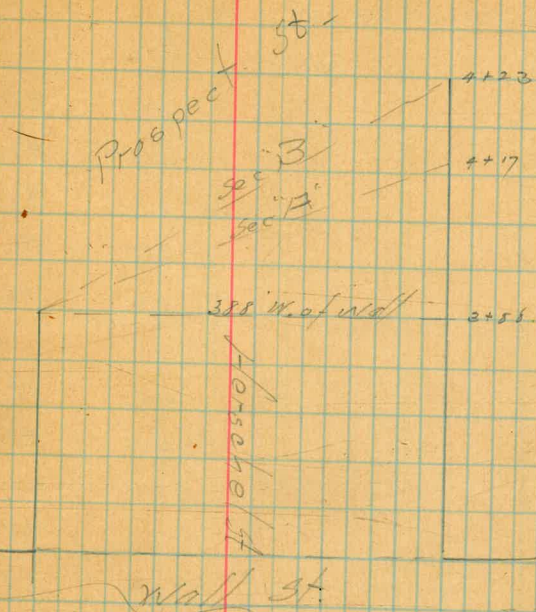 Prospect St-
4+23
Sec "B"
4+17
Sec "A"
388 W. of Wall
3+88
Herschell
Wall St.